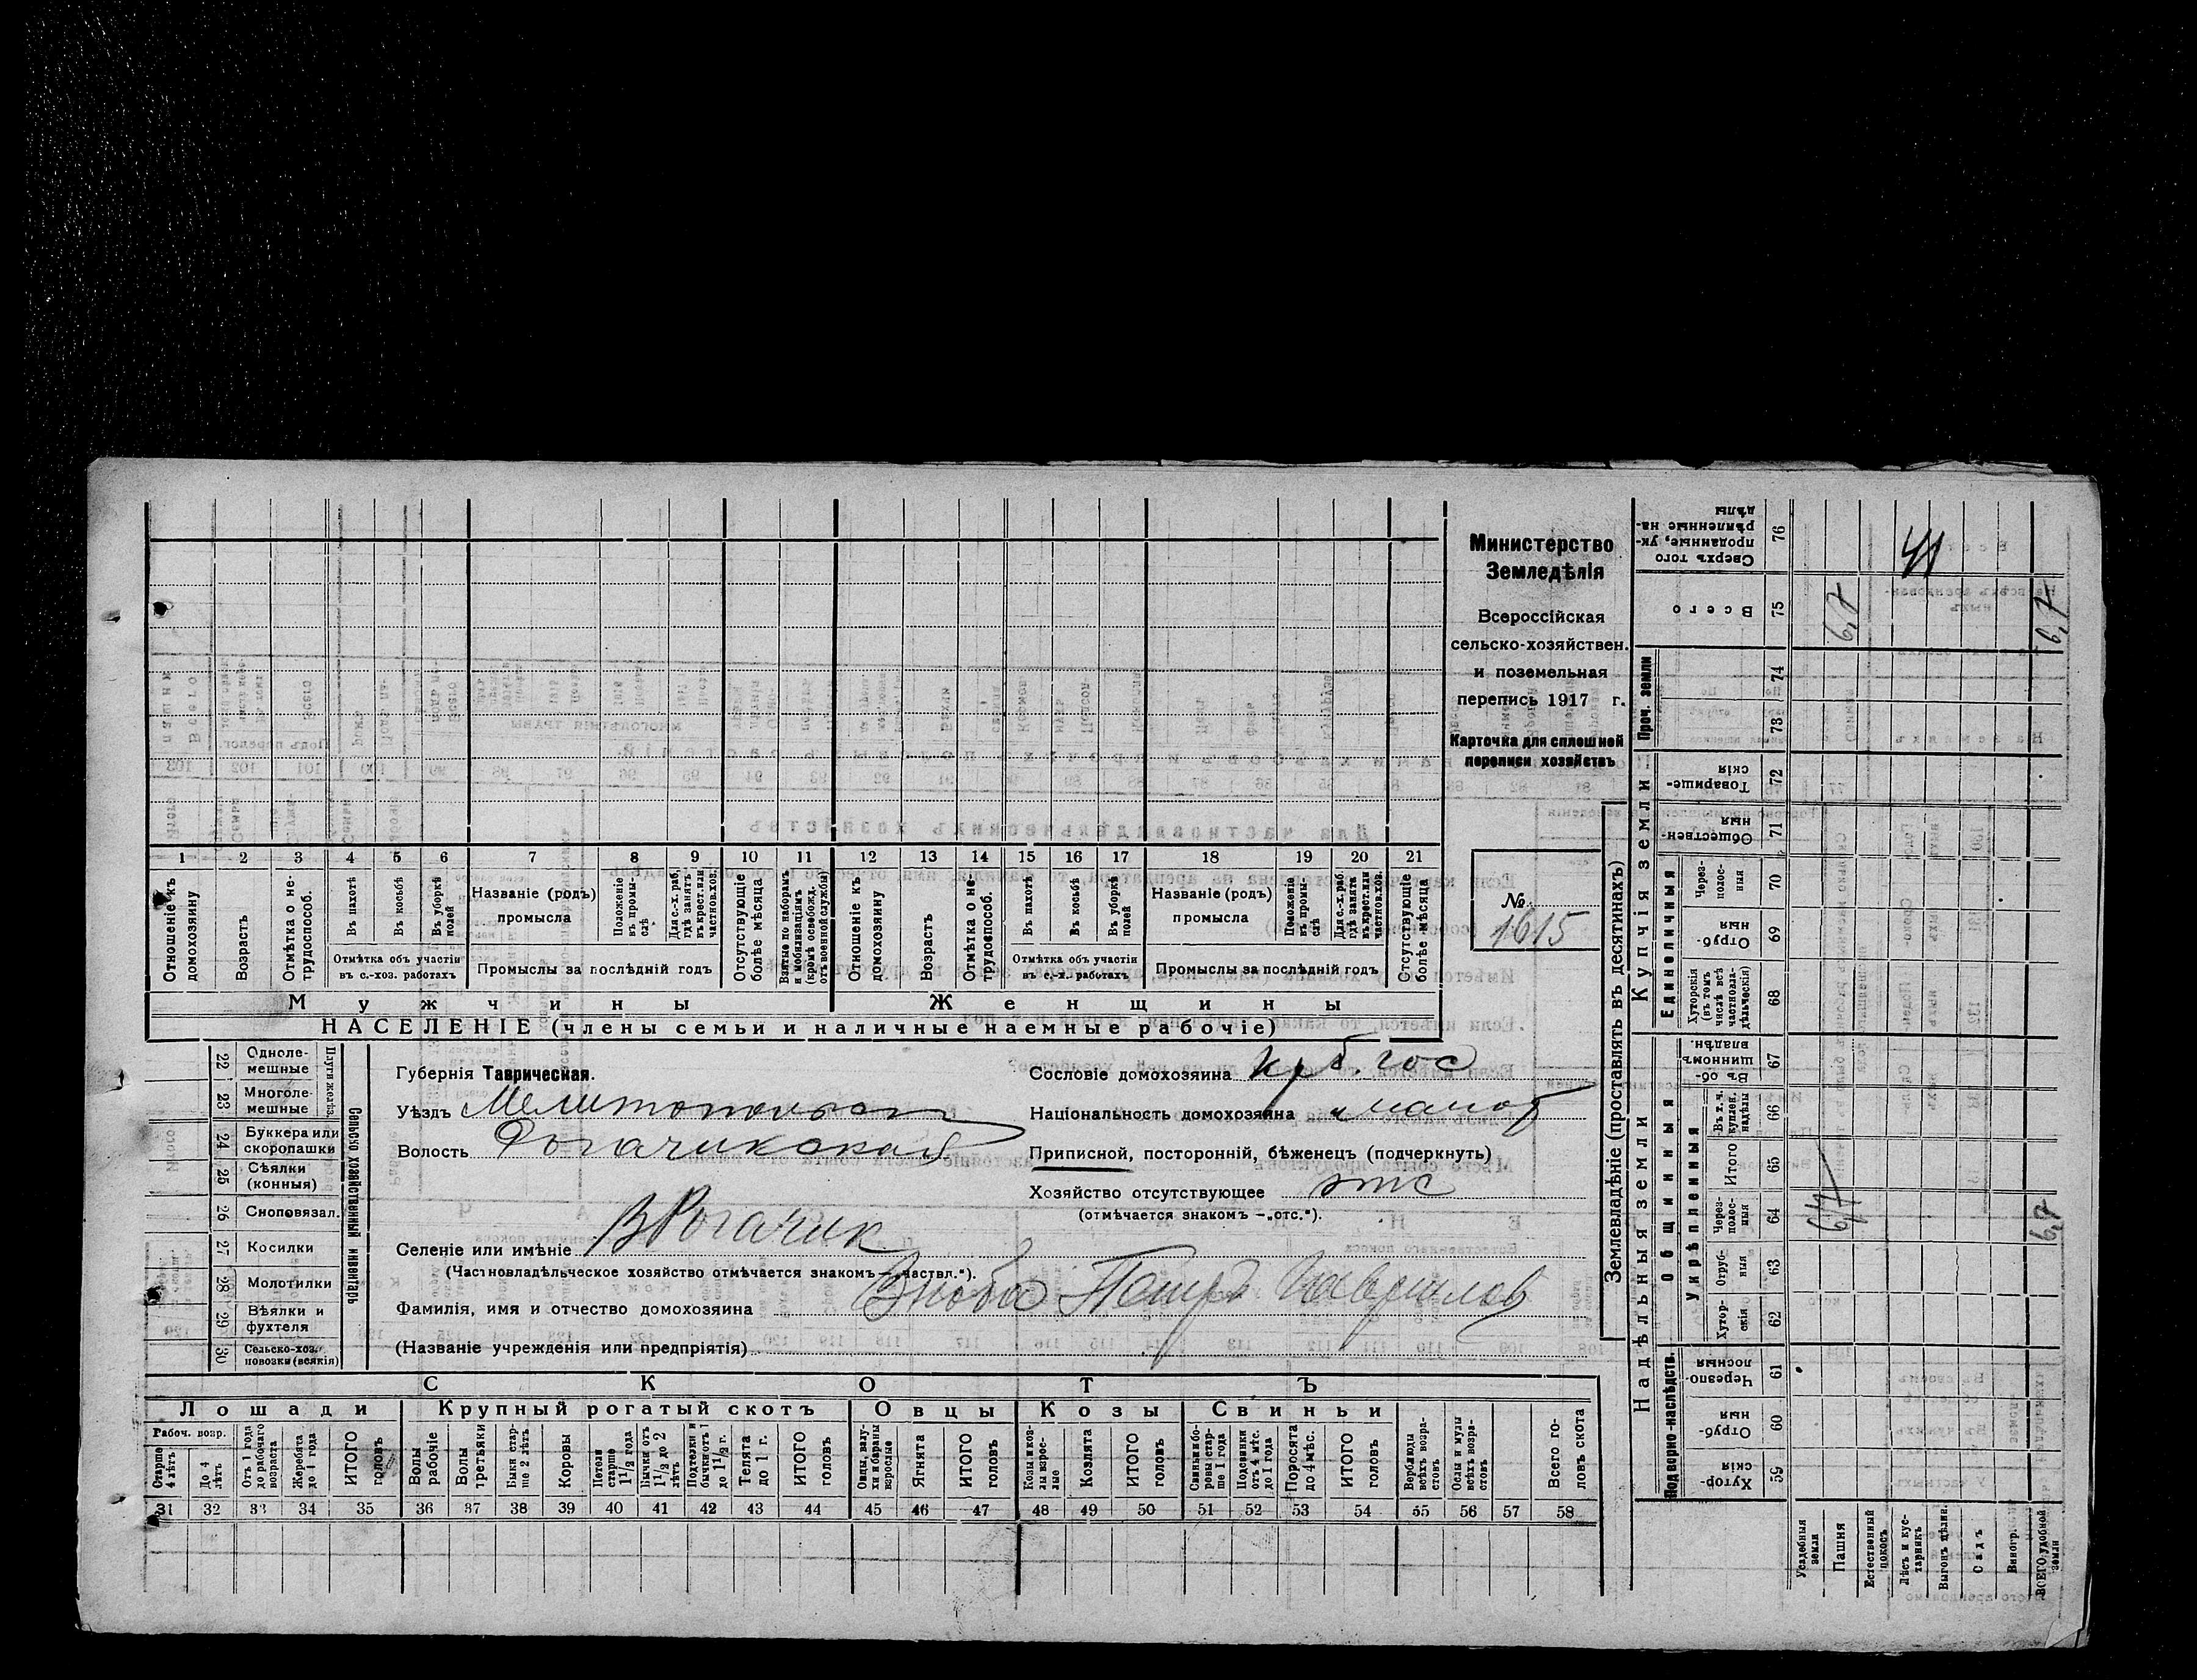 Министерство
Земледѣлія
Всероссійская
сельско-хозяйствен.
и поземельная
перепись 1917 г.
Карточка для сплошной
переписи хозяйствъ
№ 1615
1 2 3 4 5 6 7 8 9 10 11 12 13 14 15 16 17 18 19 20 21
Отношеніе къ домохозяину
Возрастъ
Отмѣтка о нетрудоспособ.
Въ пахотѣ
Въ косьбѣ
Въ уборкѣ полей
Отмѣтка объ участіи
въ с.-хоз. работахъ
Названіе (родъ)
промысла
Положеніе въ промыслѣ
Для с.-х. раб. гдѣ занятъ въ крест. или частнов. хоз.
Промыслы за послѣдній годъ
Отсутствующіе болѣе мѣсяца
Взятые по наборамъ и мобилизаціямъ (кромѣ освобожд. отъ военной службы)
Отношеніе къ домохозяину
Возрастъ
Отмѣтка о нетрудоспособ.
Въ пахотѣ
Въ косьбѣ
Въ уборкѣ полей
Отмѣтка объ участіи
въ с.-х. работахъ
Названіе (родъ)
промысла
Положеніе въ промыслѣ
Для с.-х. раб. гдѣ занята въ крест. или частнов. хоз.
Промыслы за послѣдній годъ
Отсутствующіе болѣе мѣсяца
Мужчины Женщины
НАСЕЛЕНІЕ (члены семьи и наличные наемные рабочіе)
Сельско хозяйственный инвентарь
Плуги желѣз.
22 Одноле-
мешные
23 Многоле-
мешные
24 Буккера или
скоропашки
25 Сѣялки
(конныя)
26 Сноповязал.
27 Косилки
28 Молотилки
29 Вѣялки и
фухтеля
30 Сельско-хоз.
повозки (всякія)
Губернія Таврическая.
Уѣздъ Мелитопольск
Волость Рогачикская
Селеніе или имѣніе В Рогачик
(Частновладѣльческое хозяйство отмѣчается знакомъ—„частвл.“).
Фамилія, имя и отчество домохозяина Зноба Петръ Гаврилов
(Названіе учрежденія или предпріятія)
Сословіе домохозяина
Національность домохозяина
Приписной, посторонній, бѣженецъ (подчеркнуть)
Хозяйство отсутствующее отс
(отмѣчается знакомъ —„отс.“).
СКОТЪ
Лошади Крупный рогатый скотъ Овцы Козы Свиньи
Рабоч. возр.
Старше 4 лѣтъ
До 4 лѣтъ
Отъ 1 года до рабочаго возраста
Жеребята до 1 года
ИТОГО головъ
Волы рабочіе
Волы третьяки
Быки старше 2 лѣтъ
Коровы
Нетели старше 1 1/2 года
Бычки отъ 1 1/2 до 2 лѣтъ
Подтелки и бычки отъ 1 до 1 1/2 г.
Телята до 1 г.
ИТОГО головъ
Овцы, валухи и бараны взрослые
Ягнята
ИТОГО головъ
Козы и козлы взрослые
Козлята
ИТОГО головъ
Свиньи и боровы старше 1 года
Подсвинки отъ 4 мѣс. до 1 года
Поросята до 4 мѣс.
ИТОГО головъ
Верблюды всѣхъ возрастовъ
Ослы и мулы всѣхъ возрастовъ
Всего головъ скота
31 32 33 34 35 36 37 38 39 40 41 42 43 44 45 46 47 48 49 50 51 52 53 54 55 56 57 58
Землевладѣніе (проставлять въ десятинахъ)
Надѣльныя земли Купчія земли Проч. земли
Подворно-наслѣдств.
Общинныя
Укрѣпленныя
Единоличныя
Хуторскія 59
Отрубныя 60
Черезполосныя 61
Хуторскія 62
Отрубныя 63
Черезполосныя 64
Итого 65
Въ т. ч. куплен. надѣлы 66
Въ общинномъ владѣн. 67
Хуторскія (въ томъ числѣ всѣ частновладѣльческія) 68
Отрубныя 69
Черезполосныя 70
Общественныя 71
Товарищескія 72
73
74
Всего 75
Сверхъ того проданные, укрѣпленные надѣлы 76
Усадебныя земли
Пашня 6,7 6,7
Естественный покосъ
Лѣсъ и кустарникъ
Выгонъ цѣлин.
Садъ
Виногр.
ВСЕГО удобной земли 6,7 6,7